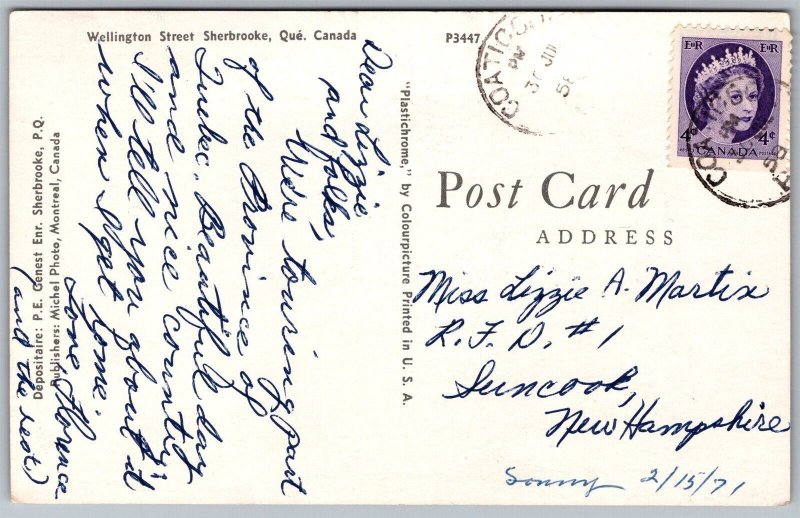 Wellington Street Sherbrooke, Qué. Canada
P3447
Dear Lizzie
and folks,
We're touring part
of the Province of
Quebec. Beautiful day
and nice country.
I'll tell you about it
when I get home.
Love, Florence
(and the rest.)
Depositaire: P.E. Genest Enr. Sherbrooke, P.Q.
Publishers: Michel Photo, Montreal, Canada
"Plastichrome," by Colourpicture Printed in U. S. A.
COATICO
PM
JUI
EIIR EIIR
4¢ 4¢
CANADA
COA
PM
Post Card
ADDRESS
Miss Lizzie A. Martin
R. F. D. #1
Suncook,
New Hampshire
Sonny 2/15/71